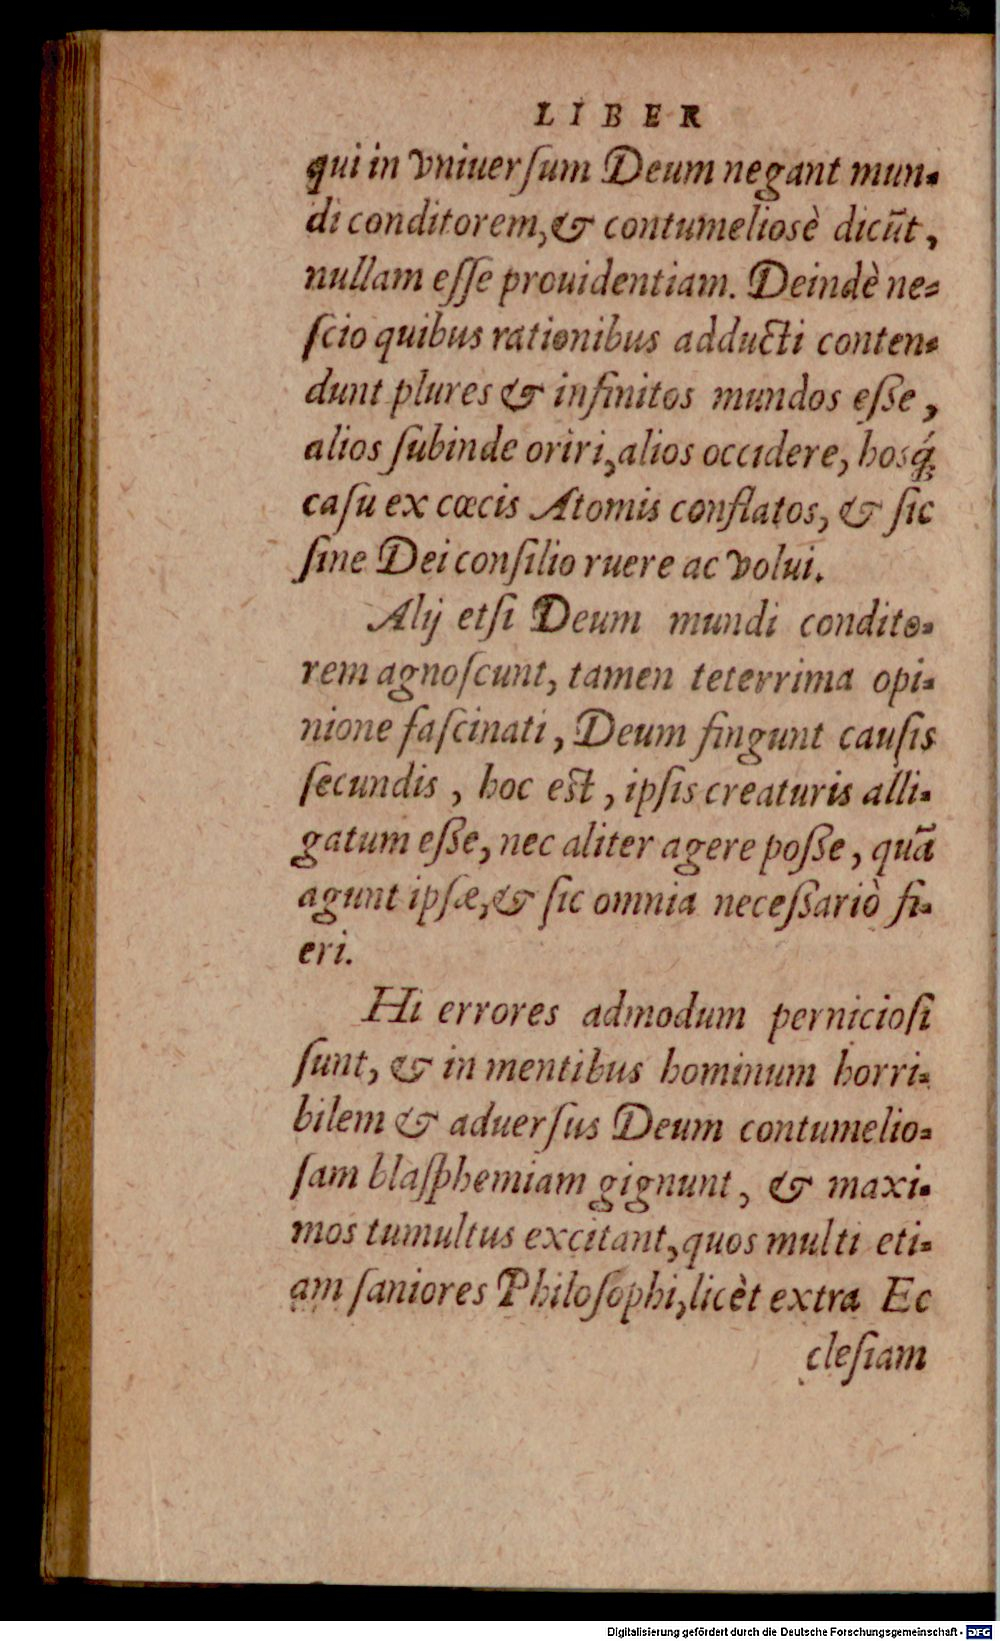 LIBER
qui in vniuerſum Deum negant mun-
di conditorem, & contumelioſè dicūt,
nullam eſſe prouidentiam. Deindè ne-
ſcio quibus rationibus adducti conten-
dunt plures & infinitos mundos eſſe,
alios ſubinde oriri, alios occidere, hosq́;
caſu ex cœcis Atomis conflatos, & ſic
ſine Dei conſilio ruere ac volui.
Alij etſi Deum mundi condito-
rem agnoſcunt, tamen teterrima opi-
nione faſcinati, Deum fingunt cauſis
ſecundis, hoc eſt, ipſis creaturis alli-
gatum eſſe, nec aliter agere poſſe, quā
agunt ipſæ, & ſic omnia neceſſariò fi-
eri.
Hi errores admodum pernicioſi
ſunt, & in mentibus hominum horri-
bilem & aduerſus Deum contumelio-
ſam blaſphemiam gignunt, & maxi-
mos tumultus excitant, quos multi eti-
am ſaniores Philoſophi, licèt extra Ec
cleſiam
Digitalisierung gefördert durch die Deutsche Forschungsgemeinschaft - DFG